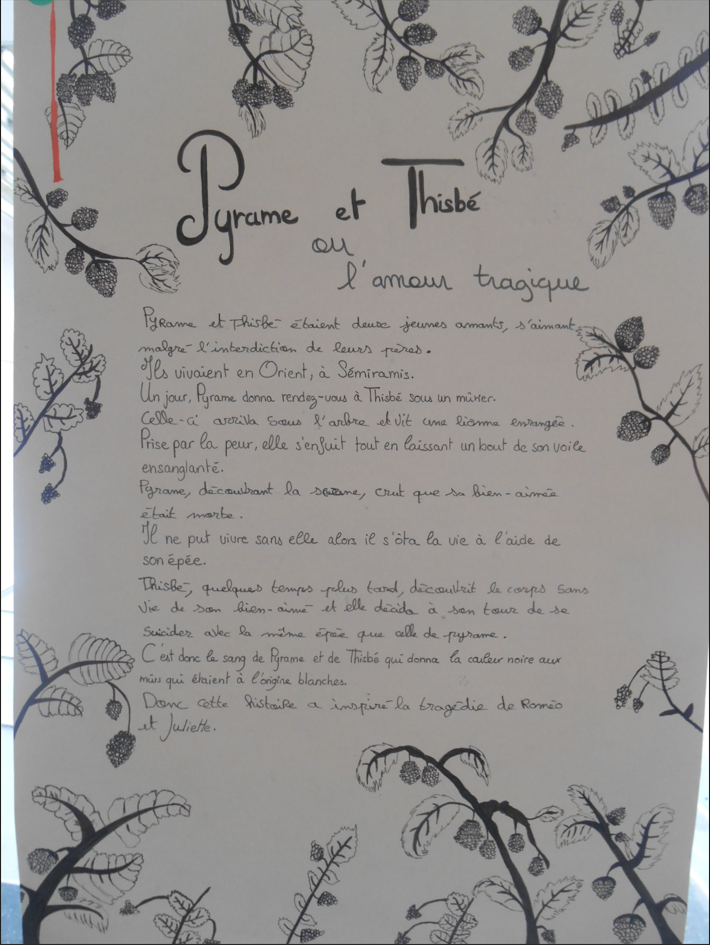 Pyrame et Thisbé
ou
l'amour tragique
Pyrame et Thisbé étaient deux jeunes amants, s'aimant,
malgré l'interdiction de leurs pères.
Ils vivaient en Orient, à Sémiramis.
Un jour, Pyrame donna rendez-vous à Thisbé sous un mûrier.
Celle-ci arriva sous l'arbre et vit une lionne enragée.
Prise par la peur, elle s'enfuit tout en laissant un bout de son voile
ensanglanté.
Pyrame, découvrant la, crut que sa bien-aimée
était morte.
Il ne put vivre sans elle alors il s'ôta la vie à l'aide de
son épée.
Thisbé, quelques temps plus tard, découvrit le corps sans
vie de son bien-aimé et elle décida à son tour de se
suicider avec la même épée que celle de pyrame.
C'est donc le sang de Pyrame et de Thisbé qui donna la couleur noire aux
mûrs qui étaient à l'origine blanches.
Donc cette histoire a inspiré la tragédie de Roméo
et Juliette.